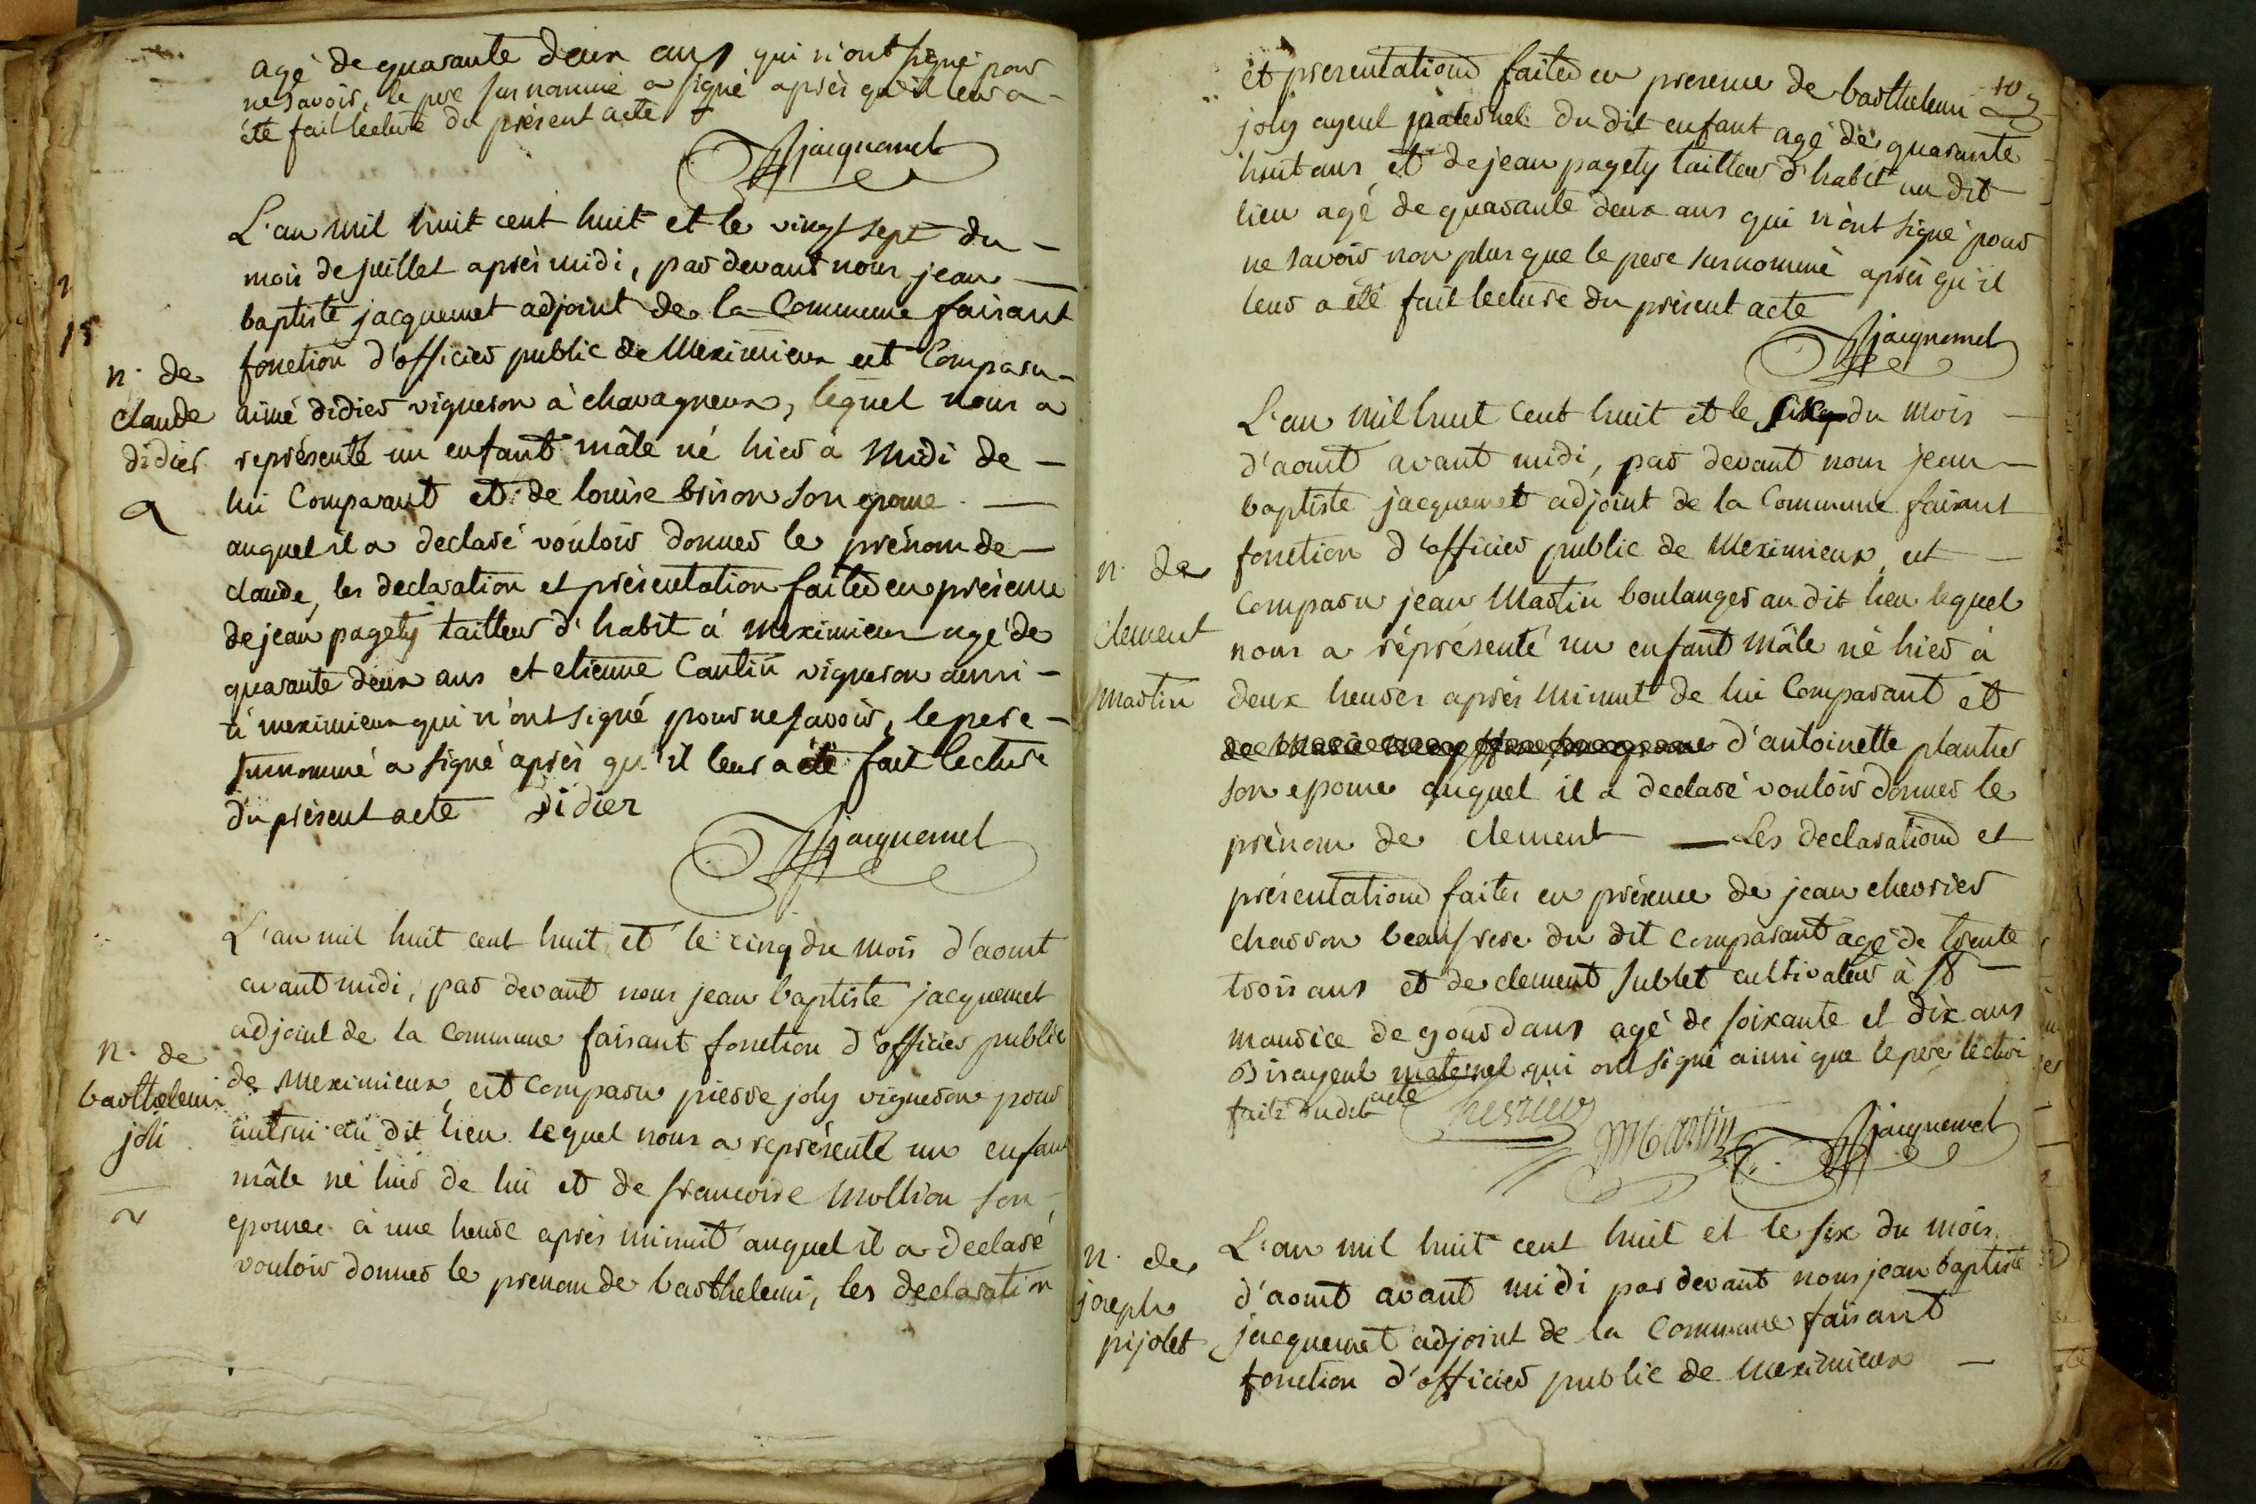 agé de quarante deux ans qui n'ont signé pour
ne savoir, le pere surnommé a signé après qu'il leur a
été fait lecture du présent acte
jacquemet
L'an mil huit cent huit et le vingt sept du
mois de juillet après midi, par devant nous jean
baptiste jacquemet adjoint de la Commune faisant
fonction d'officier public de Meximieux est Comparu
aimé didier vigneron à chavagneux, lequel nous a
représenté un enfant mâle né hier à Midi de
lui Comparant et de louise brison son epouse
auquel il a declaré vouloir donner le prénom de
claude, les declaration et présentation faites en présence
de jean pagety tailleur d'habit à meximieux agé de
quarante deux ans et etienne Cantin vigneron aussi
à meximieux qui n'ont signé pour ne savoir, le pere
surnommé a signé après qu'il leur a été fait lecture
du présent acte Didier
jacquemet
n. de
claude
didier
L'an mil huit cent huit et le cinq du mois d'aout
avant midi, par devant nous jean baptiste jacquemet
adjoint de la Commune faisant fonction d'officier public
de Meximieux est Comparu pierre joly vigneron pour
autrui au dit lieu lequel nous a représenté un enfant
mâle né hier de lui et de francoise Mollion son
epouse à une heure après minuit auquel il a declaré
vouloir donner le prenom de barthelemi, les declaration
n. de
barthelemi
joli
15
et presentations faites en presence de barthelemi
joly ayeul paternel du dit enfant agé de quarante
huit ans et de jean pagety tailleur d'habit au dit
lieu agé de quarante deux ans qui n'ont signé pour
ne savoir non plus que le pere surnommé après qu'il
leur a été fait lecture du présent acte
jacquemet
L'an mil huit cent huit et le six du mois
d'aout avant midi, par devant nous jean
baptiste jacquemet adjoint de la Commune faisant
fonction d'officier public de Meximieux est
Comparu jean Martin boulanger au dit lieu lequel
nous a réprésenté un enfant mâle né hier à
deux heures après minuit de lui Comparant et
d'antoinette plantier
son epouse auquel il a declaré vouloir donner le
prénom de clement Les declarations et
présentations faites en présence de jean chevrier
charron beaufrere du dit comparant agé de trente
trois ans et de clement Sublet cultivateur à St
maurice de gourdans agé de soixante et dix ans
Bisayeul maternel qui ont signé ainsi que le pere lecture
faite du dit acte chevrier Martin jacquemet
n. de
clement
martin
L'an mil huit cent huit et le six du mois
d'aout avant midi par devant nous jean baptiste
jacquemet adjoint de la Commune faisant
fonction d'officier public de Meximieux
n. de
joseph
pijolet